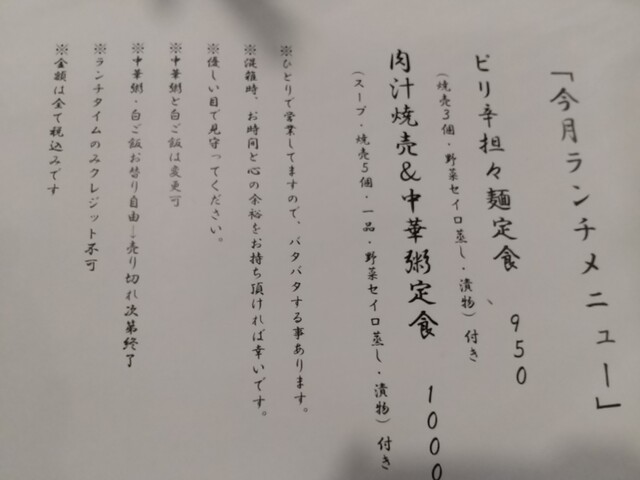 「今月ランチメニュー」
ピリ辛担々麺定食、950
(焼売3個・野菜セイロ蒸し・漬物)付き
肉汁焼売&中華粥定食 1000
(スープ・焼売5個・一品・野菜セイロ蒸し・漬物)付き
※ひとりで営業してますので、バタバタする事あります。
※混雑時、お時間と心の余裕をお持ち頂ければ幸いです。
※優しい目で見守ってください。
※中華粥と白ご飯は変更可
※中華粥・白ご飯お替り自由→売り切れ次第終了
※ランチタイムのみクレジット不可
※金額は全て税込みです